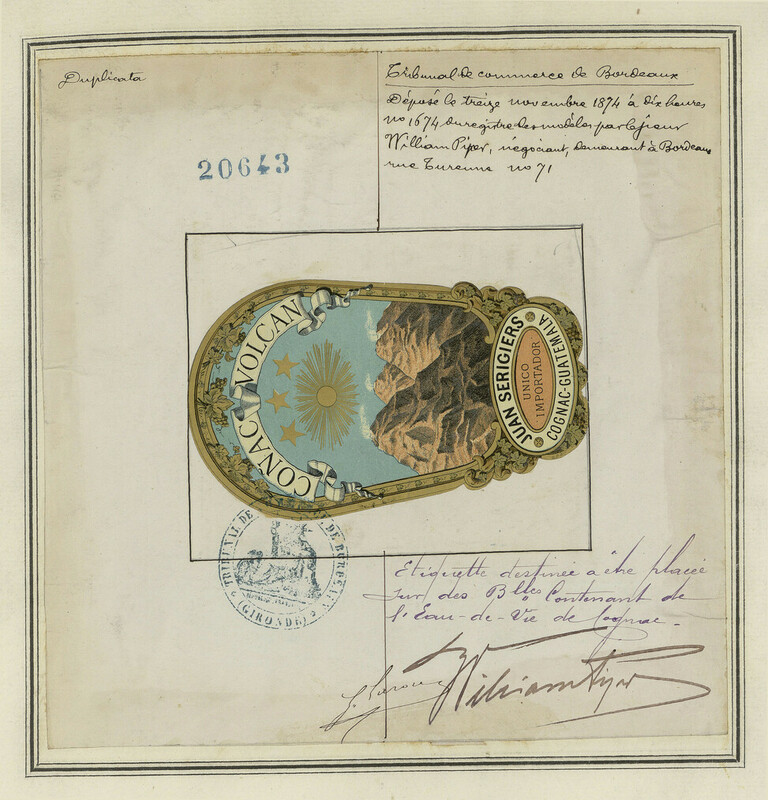 Duplicata
Tribunal de commerce de Bordeaux
Déposé le treize novembre 1874 à dix heures
no 1674 du registre des modèles par le sieur
William Piper, négociant, demeurant à Bordeaux
rue Turenne no 71
20643
CONAC VOLCAN
JUAN SERIGIERS
UNICO
IMPORTADOR
COGNAC-GUATEMALA
TRIBUNAL DE DE BORDEAUX
(GIRONDE)
Etiquette destinée à être placée
sur des Blles Contenant de
l'Eau-de-Vie de Cognac.
William Piper